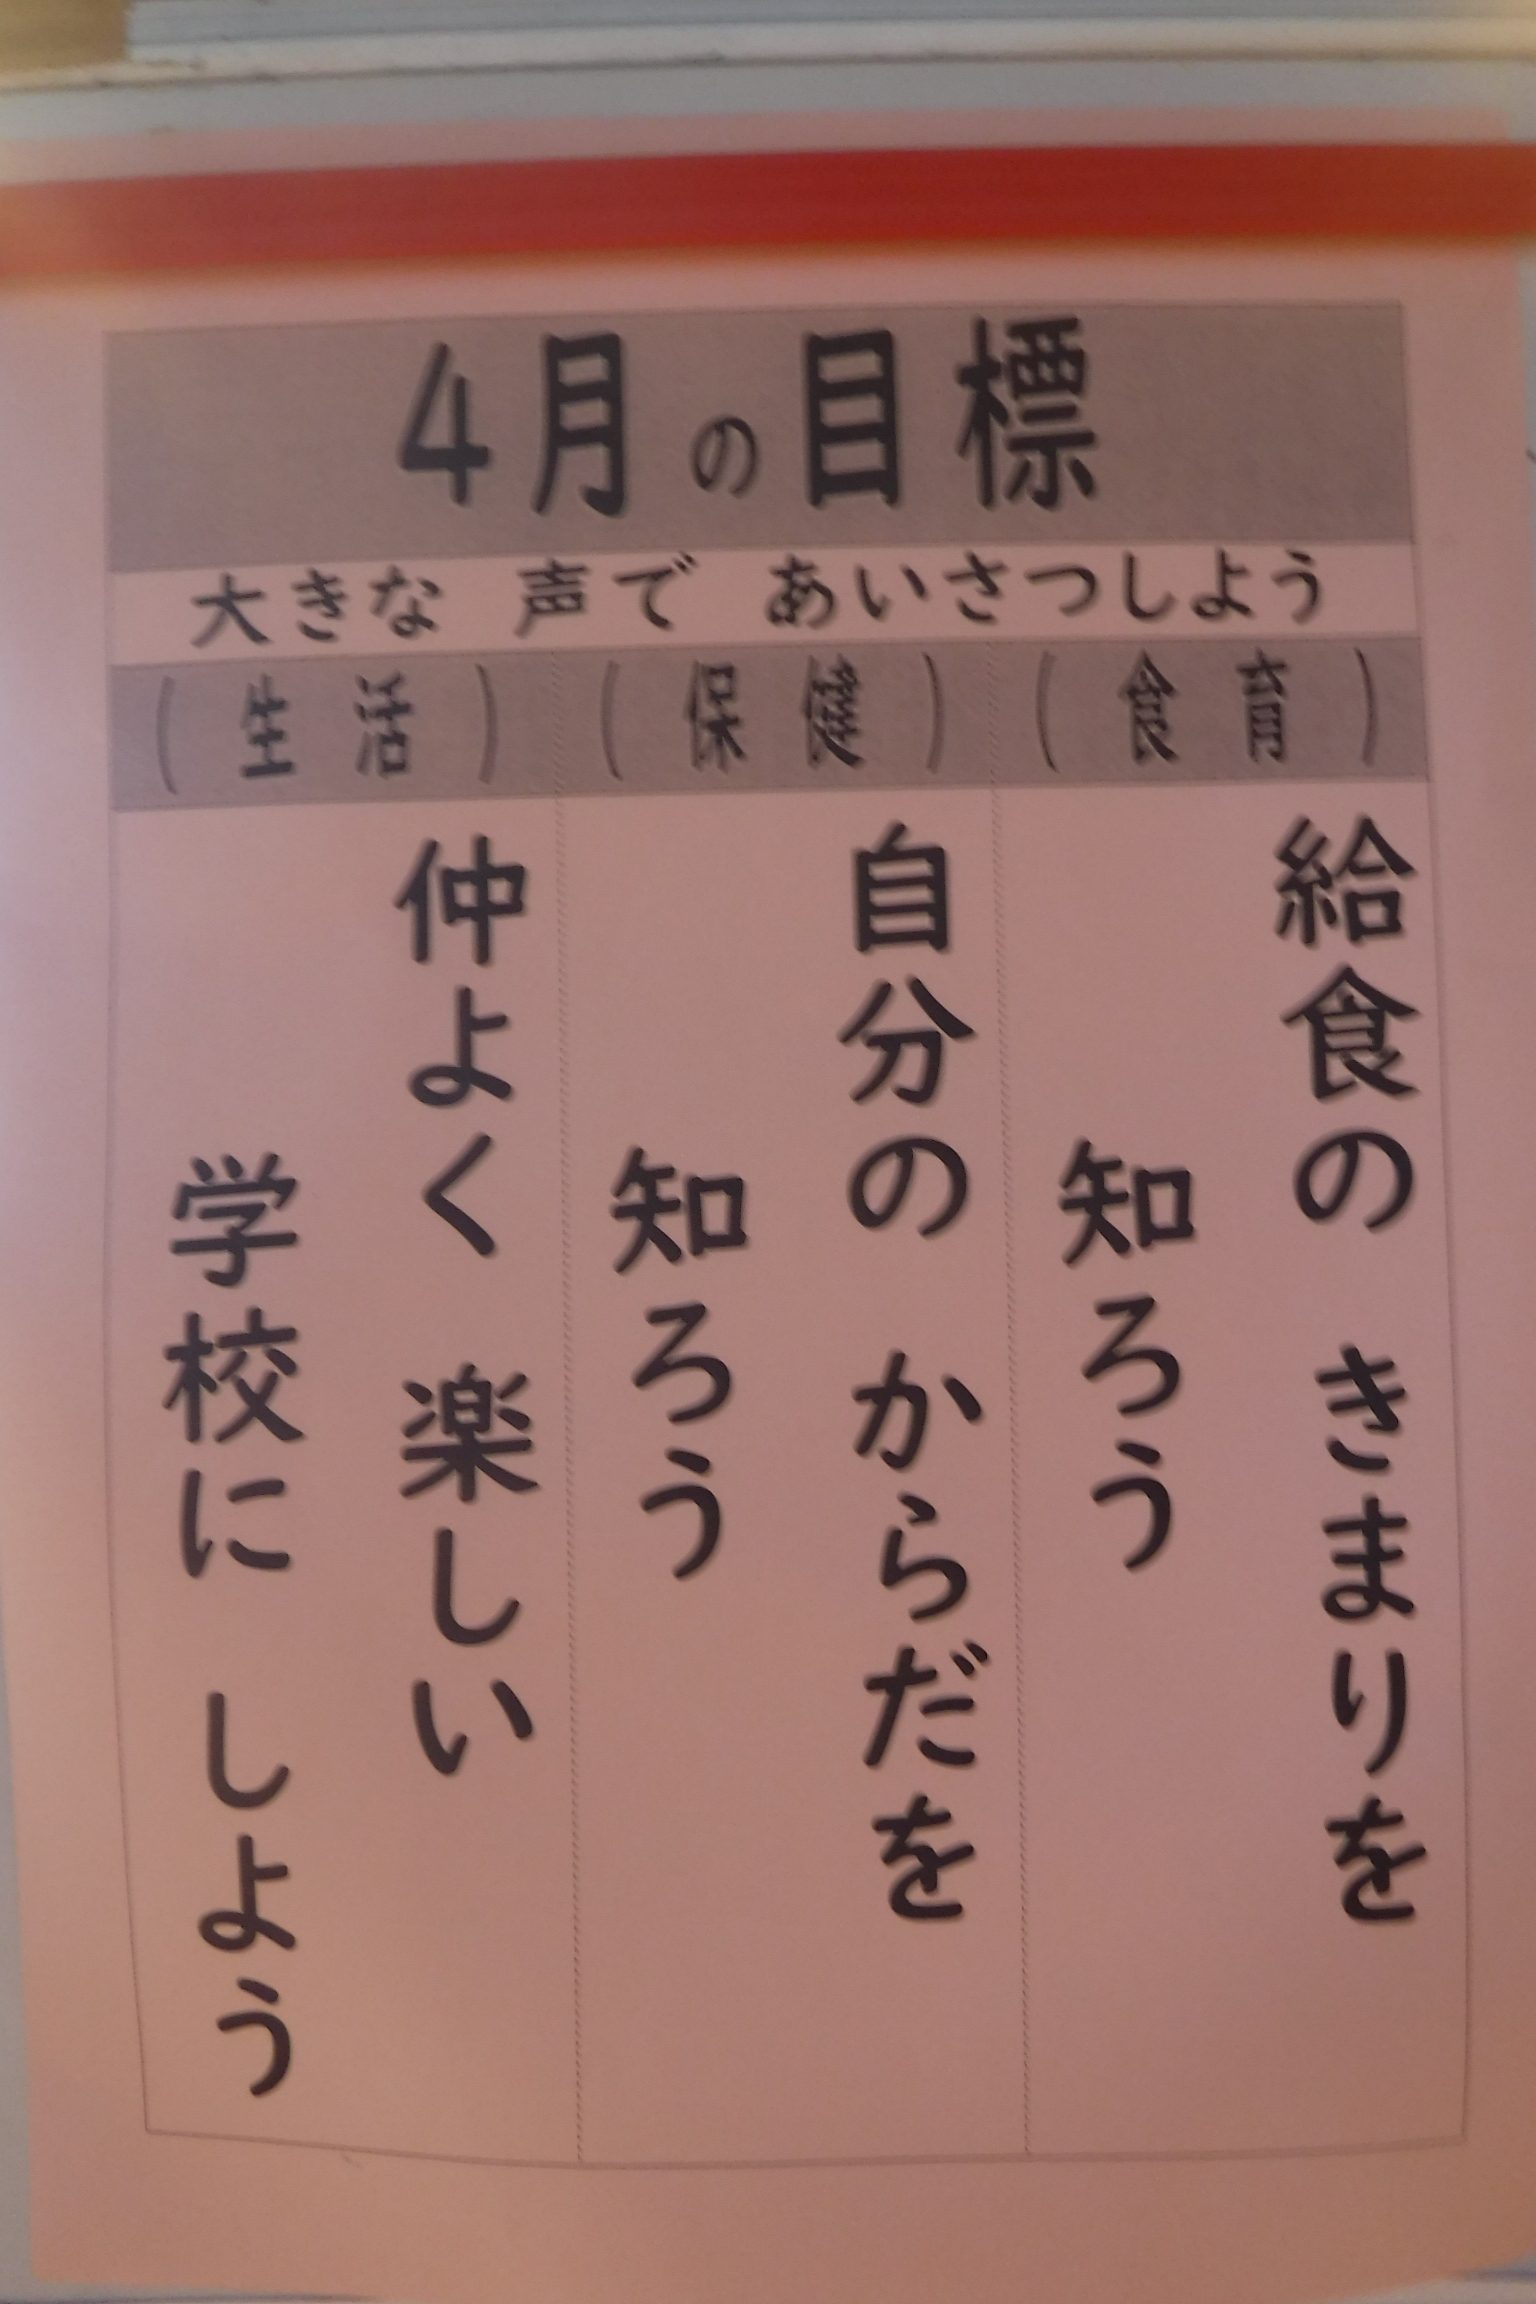 4月の目標
大きな 声で あいさつしよう
(食育)
給食の きまりを
知ろう
(保健)
自分の からだを
知ろう
(生活)
仲よく 楽しい
学校に しよう